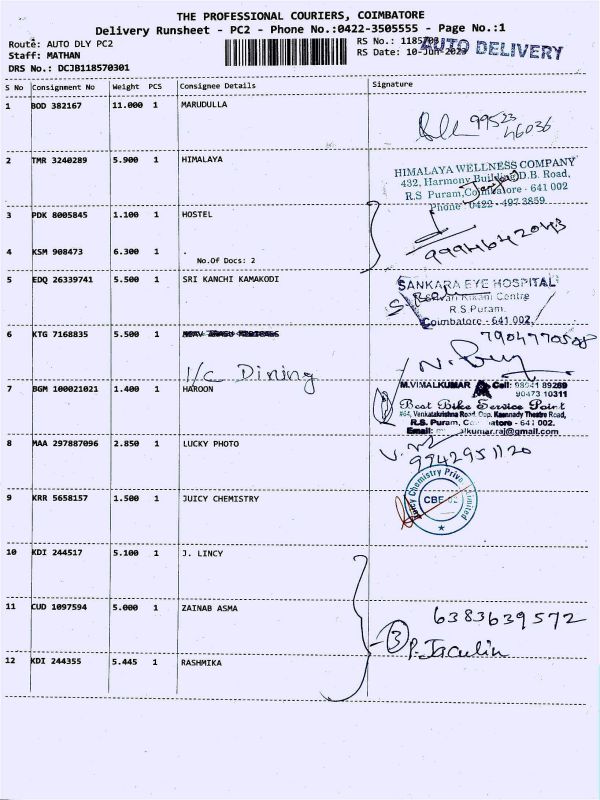 THE PROFESSIONAL COURIERS, COIMBATORE
Delivery Runsheet - PC2 - Phone No.:0422-3505555 - Page No.:1
Route: AUTO DLY PC2
RS No.: 1185703
AUTO DELIVERY
Staff: MATHAN
RS Date: 10-Jun-2023
DRS No.: DCJB118570301
S No Consignment No Weight PCS Consignee Details Signature
1 BOD 382167 11.000 1 MARUDULLA
99523
46036
2 TMR 3240289 5.900 1 HIMALAYA
HIMALAYA WELLNESS COMPANY
432, Harmony Building D.B. Road,
R.S Puram, Coimbatore - 641 002
Phone 0422 - 497 3859
3 PDK 8005845 1.100 1 HOSTEL
4 KSM 908473 6.300 1 .
No.Of Docs: 2
9994642043
5 EDQ 26339741 5.500 1 SRI KANCHI KAMAKODI
SANKARA EYE HOSPITAL
Centre
R.S Puram,
Coimbatore - 641 002.
6 KTG 7168835 5.500 1
I/C Dining
7 BGM 100021021 1.400 1 HAROON
M.VIMALKUMAR Cell: 98041 89269
90473 10311
Best Bike Service Point
#64, Venkatakrishna Road, Opp. Kennady Theatre Road,
R.S. Puram, 641 002.
Email: alkumar.raj@gmail.com
8 MAA 297887096 2.850 1 LUCKY PHOTO
9942951120
9 KRR 5658157 1.500 1 JUICY CHEMISTRY
Juicy Chemistry Private Limited
CBE
10 KDI 244517 5.100 1 J. LINCY
11 CUD 1097594 5.000 1 ZAINAB ASMA
6383639572
3 P. Jaculin
12 KDI 244355 5.445 1 RASHMIKA